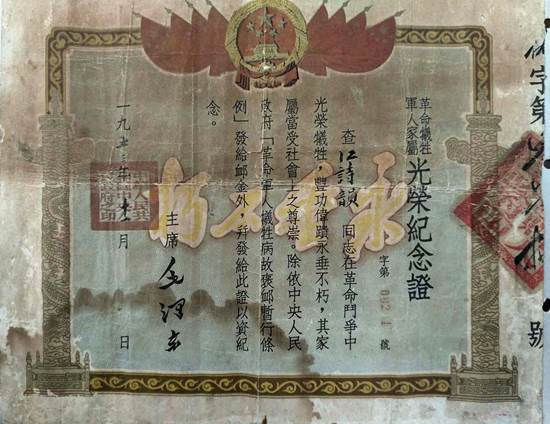 字第
號
革命犧牲
軍人家屬
光榮紀念證
字第 號
查江詩韻同志在革命鬥爭中
光榮犧牲，豐功偉蹟永垂不朽，其家
屬當受社會上之尊崇。除依中央人民
政府「革命軍人犧牲病故褒卹暫行條
例」發給卹金外，幷發給此證以資紀
念。
主席 毛澤東
一九五三年 月 日
永垂不朽